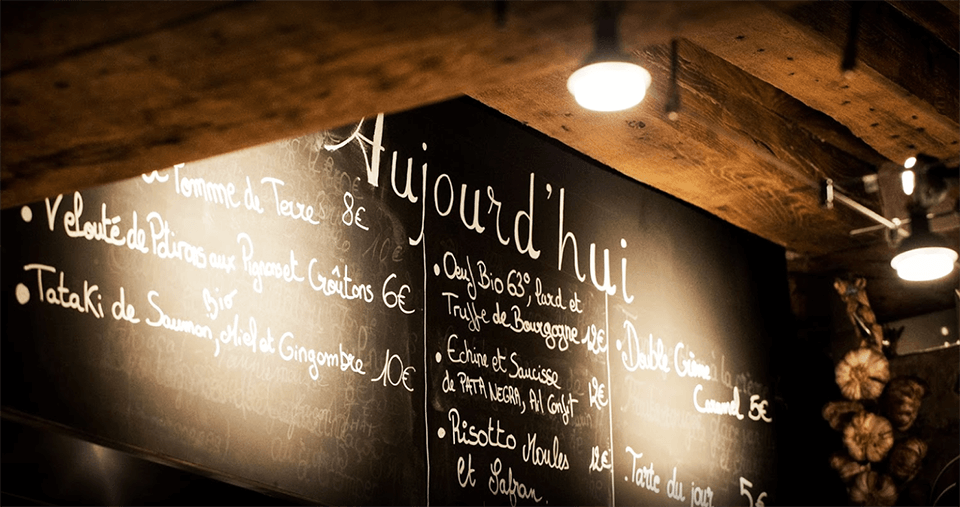 Aujourd'hui
Pomme de Terre 8€
• Velouté de Potirons aux Pignons et Croûtons 6€
• Tataki de Saumon Bio, Miel et Gingembre 10€
• Oeuf Bio 63°, lard et
Truffe de Bourgogne 12€
• Echine et Saucisse
de PATA NEGRA, Ail Confit 12€
• Risotto Moules 12€
et Safran.
• Double Crème
Caramel 5€
• Tarte du jour 5€